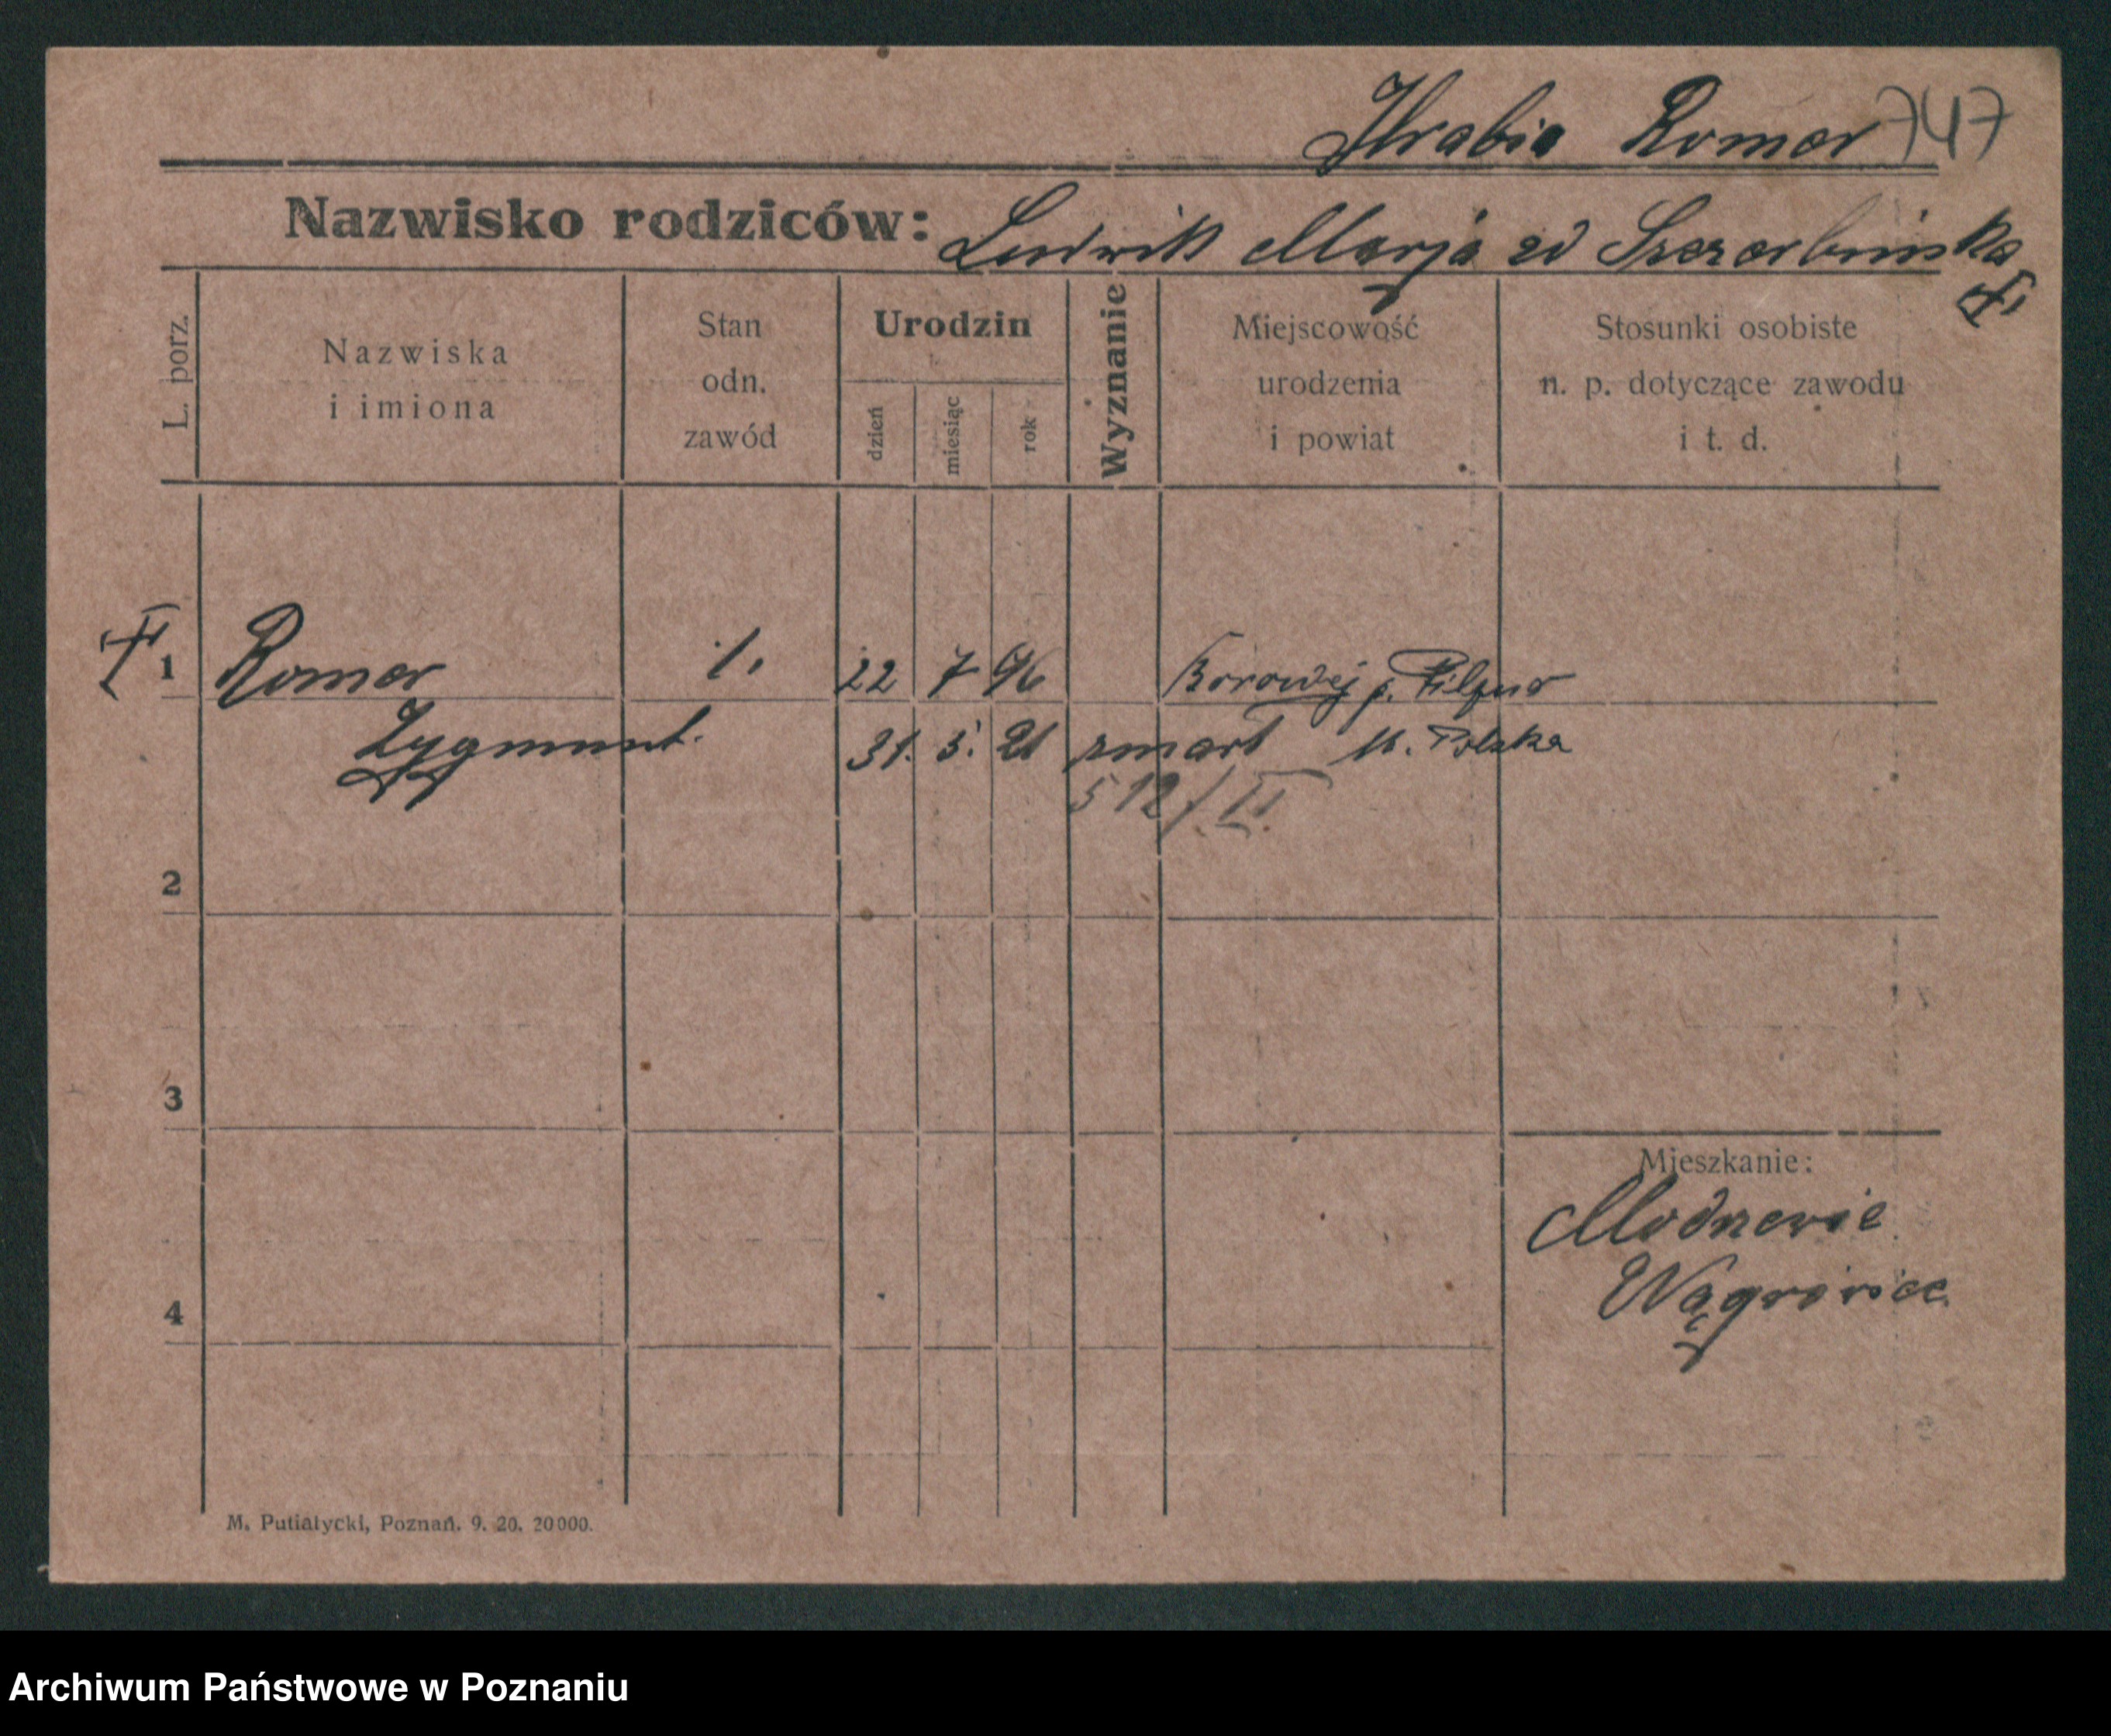 Hrabia Romer 747
Nazwisko rodziców: Ludwik Marja zd Szczerbińska
L. porz.
Nazwiska
i imiona
Stan
odn.
zawód
Urodzin
dzień
miesiąc
rok
Wyznanie
Miejscowość
urodzenia
i powiat
Stosunki osobiste
n. p. dotyczące zawodu
i t. d.
1 Romer ./. 22 7 96 Borowej p. Pilzno
Zygmunt. 31. 5. 21 zmarł M. Polska
512/II
2
3
Mieszkanie:
Wągrowiec
4
M. Putiatycki, Poznań. 9. 20. 20000.
Archiwum Państwowe w Poznaniu